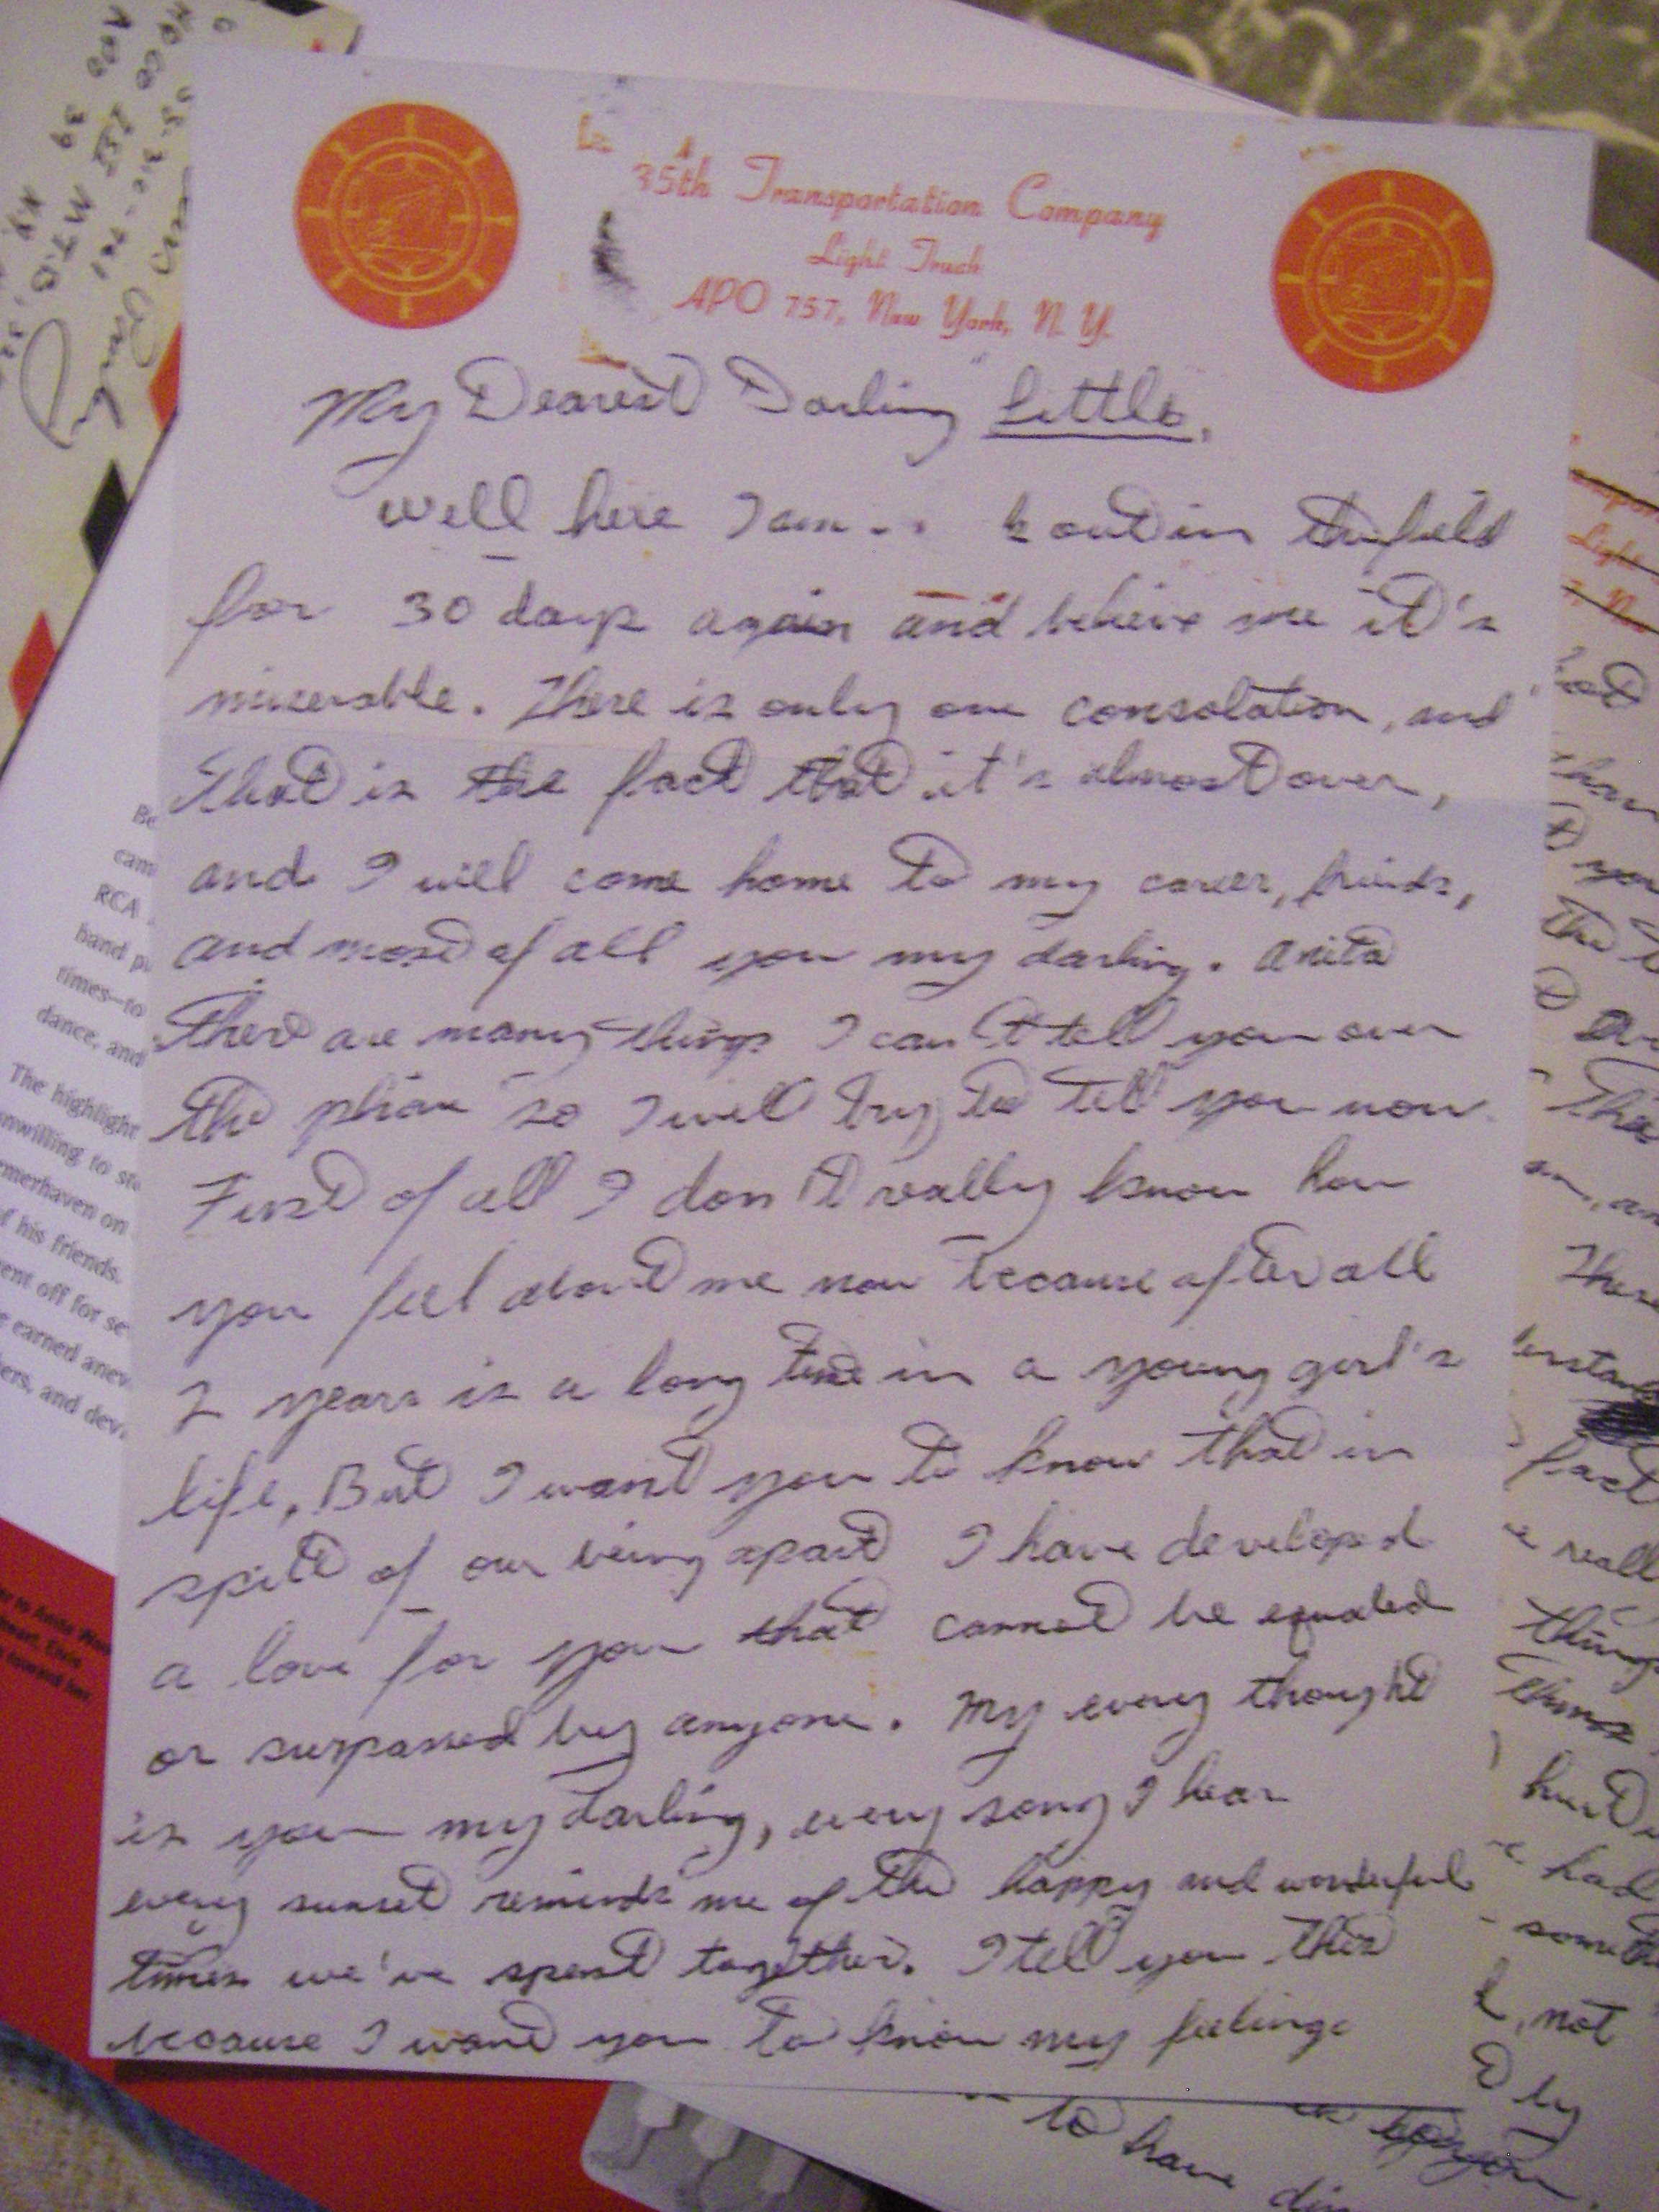 35th Transportation Company
Light Truck
APO 757, New York, N. Y.
My Dearest Darling "Little",
Well here I am.. out in the field
for 30 days again and believe me it's
miserable. There is only one consolation, and
that is the fact that it's almost over,
and I will come home to my career, friends,
and most of all you my darling. Anita
there are many things I can't tell you over
the phone so I will try to tell you now
First of all I don't really know how
you feel about me now because after all
2 years is a long time in a young girl's
life, But I want you to know that in
spite of our being apart I have developed
a love for you that cannot be equaled
or surpassed by anyone. My every thought
is you my darling, every song I hear
every sunset reminds me of the happy and wonderful
times we've spent together. I tell you this
because I want you to know my feelings
RCA
band
times—to
dance, and
The highlight
unwilling to
emerhaven on
of his friends.
ent off for
earned
ers, and
Light
you
the
These
fact
things
hurt
had
not
by
to have